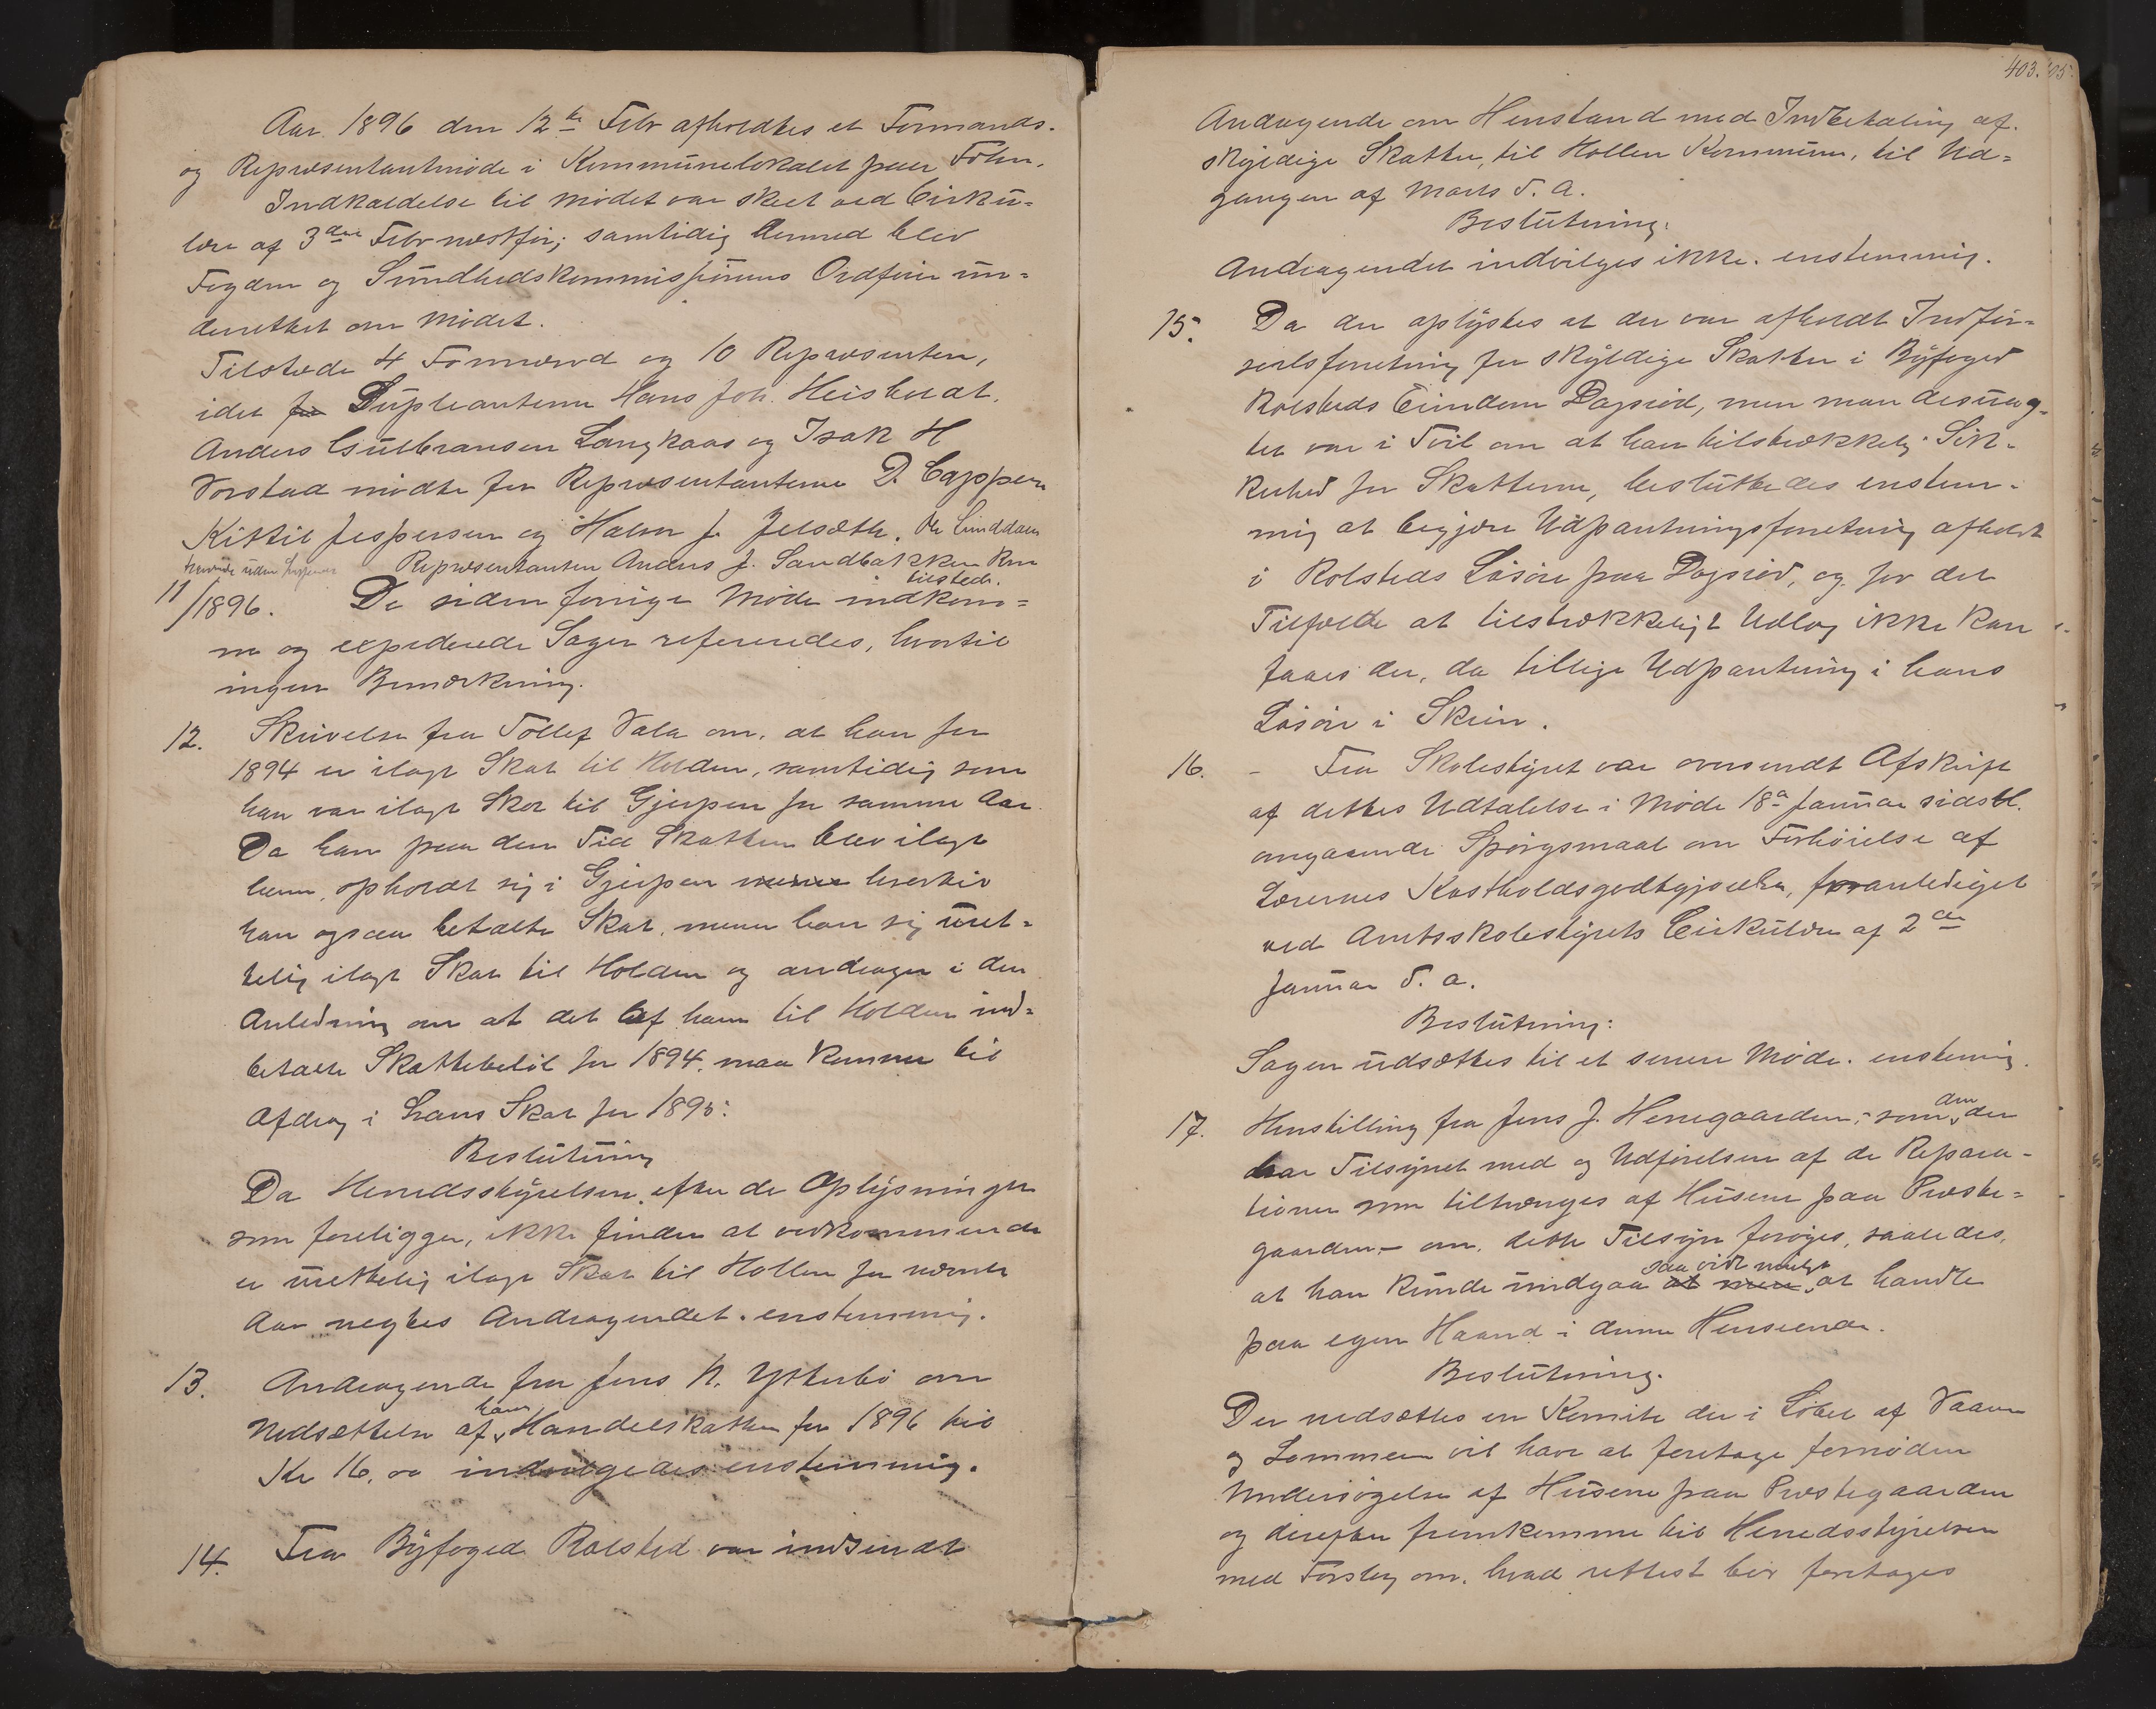 Aar 1896 den 12te Febr afholdtes et Formands-
og Repræsentantmøde i Kommunelokalet paa
Indkaldelse til mødet var skeet ved Cirku-
lære af 3die Febr næstfør; samtidig dermed blev
Fogden og Sundhedskommissionens Ordfører un-
derrettet om mødet.
Tilstede 4 Formænd og 10 Repræsenter,
idet Supleanterne Hans Joh. Heisholdt,
Anders Gulbransen Langkaas og Isak H
Vorstad mødte for Repræsentanterne D. Cappen
Kittil Jespersen og Halvor J. Jelsæth.
Repræsentanten Anders J. Sandbakken kom
tilstede.
11/1896. De siden forrige Møde indkom-
ne og expederede Sager refereredes, hvortil
ingen Bemærkning.
12. Skrivelse fra Tollef Vala om, at han for
1894 er ilagt Skat til Holden, samtidig som
han var ilagt Skat til Gjerpen for samme Aar
Da han paa den Tid Skatten blev ilagt
ham, opholdt sig i Gjerpen hvortil
han ogsaa betalte Skat, mener han sig uret-
telig ilagt Skat til Holden og andrager i den
Anledning om at det af ham til Holden ind-
betalte Skattebeløb for 1894, maa komme til
Afdrag i hans Skat for 1895.
Beslutning
Da Herredsstyrelsen, efter de Oplysninger
som foreligger, ikke finder at vedkommende
er urettelig ilagt Skat til Hollen for nævnte
Aar negtes Andragendet. enstemmig.
13. Andragende fra Jens N. Ytterbø om
Nedsættelse af hans Handelskatten for 1896 til
Kr 16.00 indvilgedes enstemmig.
14. Fra Byfoged Rolsted var indsendt
403.
Andragende om Henstand med Indbetaling af
skyldige Skatter, til Hollen Kommune, til Ud-
gangen af Marts d. A.
Beslutning:
Andragendet indvilges ikke. enstemmig.
15. Da der oplystes at der var afholdt Indfør-
selsforretning for skyldige Skatter i Byfoged
Rolsteds Eiendom Dagsrød, men man desuag-
tet var i Tvil om at han tilstrækkelig Sik-
kerhed for Skatterne, besluttedes enstem-
mig at begjære Udpantningsforretning afholdt
i Rolsteds Løsøre paa Dagsrød, og for det
Tilfælde at tilstrækkeligt Udlæg ikke kan
faaes der, da tillige Udpantning i hans
Løsøre i Skien.
16. - Fra Skolestyret var oversendt Afskrift
af dettes Udtalelse i Møde 18de Januar sidstl.
angaaende Spørgsmaal om Forhøielse af
Lærernes Kostholdsgodtgjørelse, foranlediget
ved Amtsskolestyrets Cirkulære af 2den
Januar d. a.
Beslutning:
Sagen udsættes til et senere Møde. enstemmig.
17. Henstilling fra Jens J. Herregaarden, - som den der
har Tilsynet med og Udførelsen af de Repara-
tioner som tiltrænges af Husene paa Præste-
gaarden, - om, dette Tilsyn forøges, saaledes,
at han kunde undgaa saa vidt muligt at handle
paa egen Haand i denne Henseende.
Beslutning.
Der nedsættes en Komite der i Løbet af Vaaren
og Sommeren vil have at foretage fornøden
Undersøgelse af Husene paa Præstegaarden
og derefter fremkomme til Herredsstyrelsen
med Forslag om, hvad rettest bør foretages